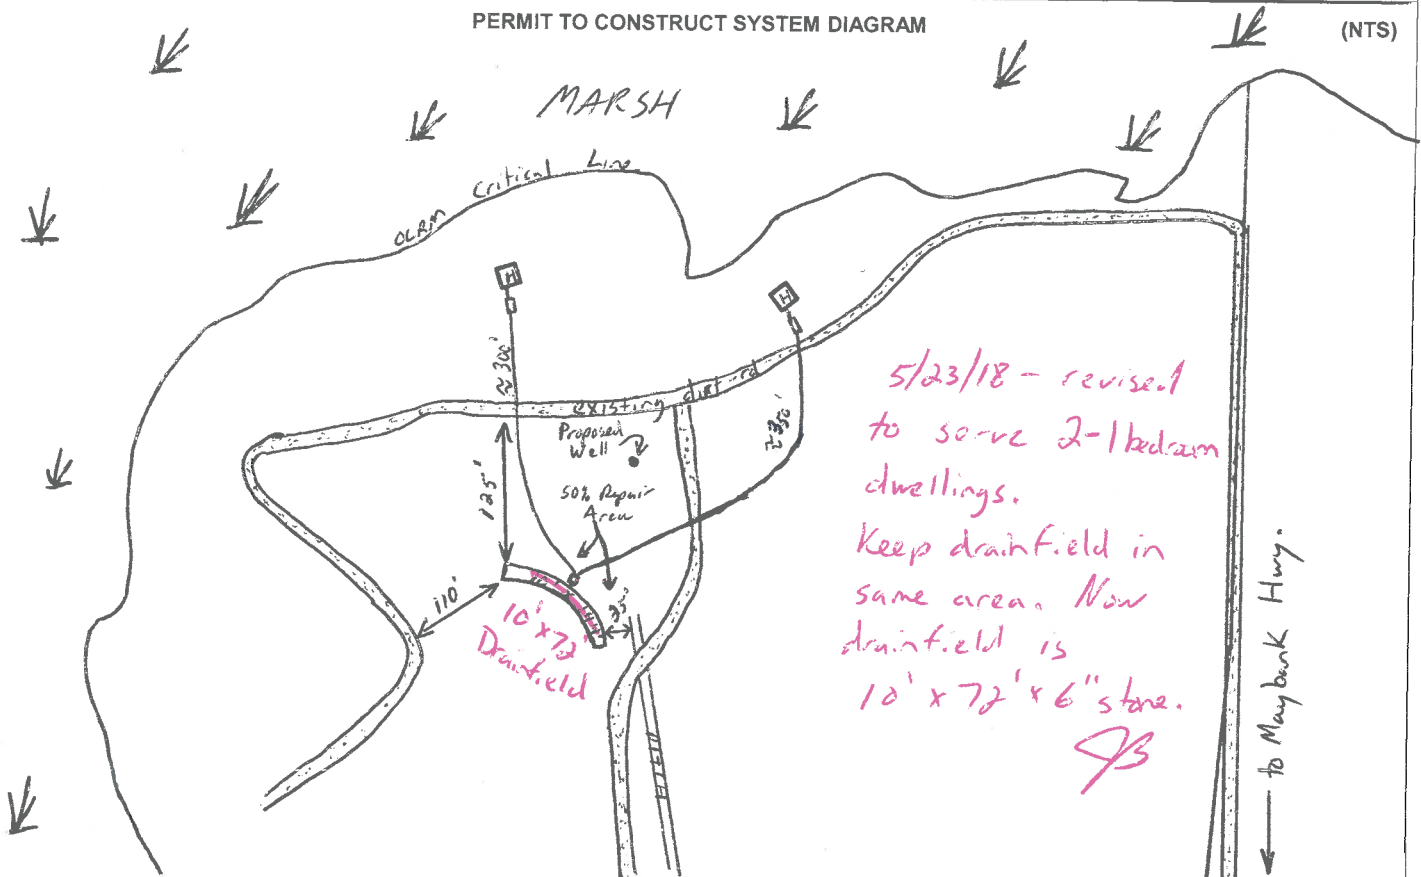 PERMIT TO CONSTRUCT SYSTEM DIAGRAM
(NTS)
MARSH
OCRM Critical Line
H
H
≈ 300'
existing dirt rd
Proposed
Well
≈ 350'
125'
50% Repair
Area
110'
25'
10' x 72'
Drainfield
5/23/18 - revised
to serve 2-1 bedroom
dwellings.
Keep drainfield in
same area. Now
drainfield is
10' x 72' x 6" stone.
JB
to Maybank Hwy.